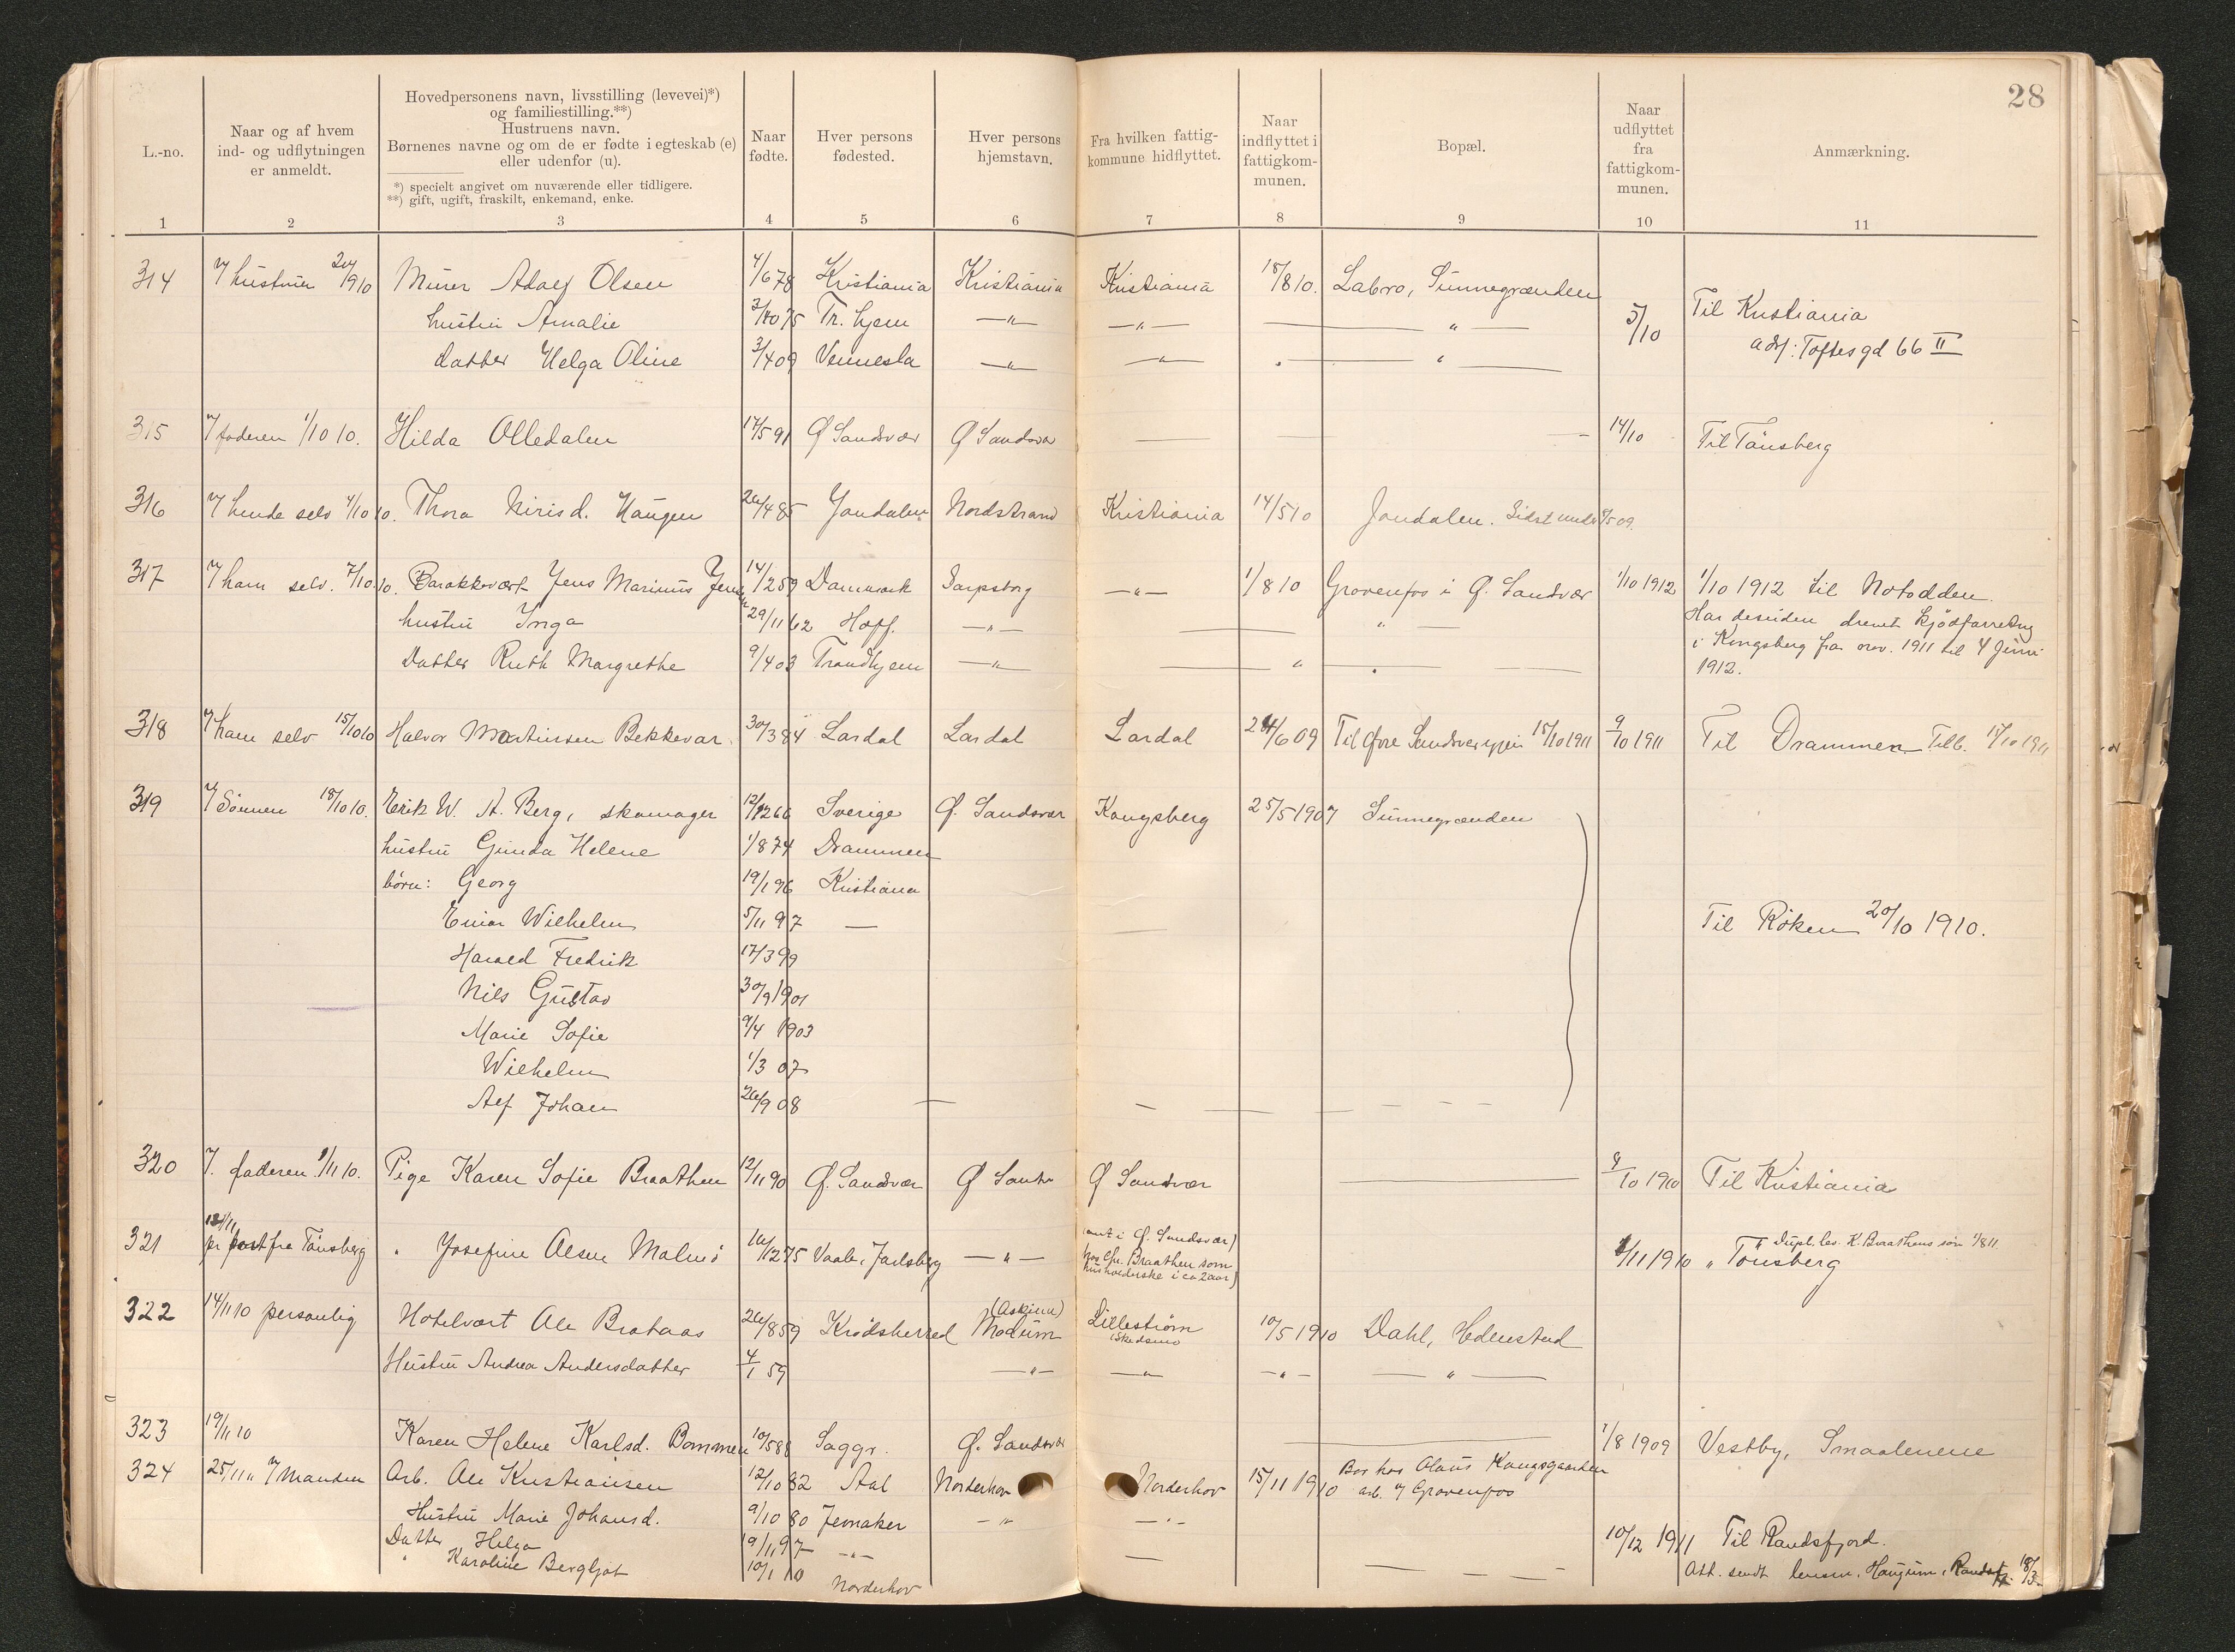 28
L.-no.
Naar og af hvem
ind- og udflytningen
er anmeldt.
Hovedpersonens navn, livsstilling (levevei)*)
og familiestilling.**)
Hustruens navn.
Børnenes navne og om de er fødte i egteskab (e)
eller udenfor (u).
*) specielt angivet om nuværende eller tidligere.
**) gift, ugift, fraskilt, enkemand, enke.
Naar
fødte.
Hver persons
fødested.
Hver persons
hjemstavn.
Fra hvilken fattig-
kommune hidflyttet.
Naar
indflyttet i
fattigkom-
munen.
Bopæl.
Naar
udflyttet
fra
fattigkom-
munen.
Anmærkning.
1 2 3 4 5 6 7 8 9 10 11
314 hustruen 20/9 10 Murer Adolf Olsen 4/6 78 Kristiania Kristiania Kristiania 18/8 10. Labro, Sünnegrænden
hustrü Amalie 3/10 75 Tr. hjem —"— —"— —"—
5/10 Til Kristiania
datter Helga Oline 3/4 09 Vennesla —"— —"— —"—
adr: Toftesgd 66 II
315 faderen 1/10 10. Hilda Olledalen 17/5 91 Ø Sandsvær Ø Sandsvær — — — 14/10 Til Tönsberg
316 hende selv 4/10 10. Thora Nirisd. Haugen 20/4 85 Jondalen Nordstrand Kristiania 14/5 10 Jondalen. Sidst under 9/5 09.
317 ham selv. 7/10 10. Barakkevært Jens Marinus Jensen 14/2 59 Danmark Sarpsborg —"— 1/8 10 Gravenfos i Ø. Sandsvær 1/10 1912 1/10 1912 til Notodden.
hustrü Inga 29/11 62 Hoff. —"— — " —
Har desuden drevet kjödforretning
i Kongsberg fra nov. 1911 til 4 Juni
1912.
Datter Ruth Margrethe 9/4 03 Trondhjem —"— — " —
318 ham selv 15/10 10 Halvor Martinsen Bekkevar 30/3 84 Lardal Lardal Lardal 24/6 09 Til Øvre Sandsvær igjen 15/10 1911 9/10 1911 Til Drammen Tilb. 15/10 1911
319 Sönnen 18/10 10. Erik W. A. Berg, skomager 12/12 66 Sverige Ø. Sandsvær Kongsberg 25/5 1907 Sünnegrænden
hustrü Gunda Helene 1/8 74 Drammen
börn: Georg 19/1 96 Kristiania
Einar Wilhelm 5/11 97 —
Til Röken 20/10 1910.
Harald Fredrik 17/3 99
Nils Gustav 30/9 1901
Marie Sofie 9/4 1903
Wilhelm 1/3 07
Alf Johan 20/9 08 — —
320 faderen 1/11 10. Pige Karen Sofie Braathen 12/11 90 Ø. Sandsvær Ø Sandsv Ø Sandsvær — 9/10 1910 Til Kristiania
321 12/11
pr post fra Tönsberg " Josefine Olsen Malmö 10/12 75 Vaale, Jarlsberg —"—
i Ø. Sandsvær)
hos Chr. Braathen som
husholderske i ca 2 aar)
1/11 1910 " Tönsberg
Dupl. lev. K. Braathens sön 1/8 11
322 14/11 10 personlig Hotelvært Ole Brataas 20/8 59 Krödsherred (Askim)
Modum Lilleström
(Skedsmo 10/5 1910 Dahl, Hedenstad
Hustru Andrea Andersdatter 4/1 59 —"— —"— —"— —"—
323 19/11 10 Karen Helene Karlsd. Bommen 10/5 88 Saggr. Ø. Sandsvær — 1/8 1909 Vestby, Smaalenene
324 25/11 " Manden Arb. Ole Kristiansen 12/10 82 Aal Norderhov Norderhov 15/11 1910 Bor hos Olaus Kongsgaarden
arb. Gravenfos
Hustru Marie Johansd. 9/10 80 Jevnaker —"— —"—
Datter Helga 19/11 97 —"— —
10/12 1911 Til Randsfjord.
" Karoline Bergljot 10/1 10 Norderhov
Att. sendt lensm. Haugum, Randsf. 18/3